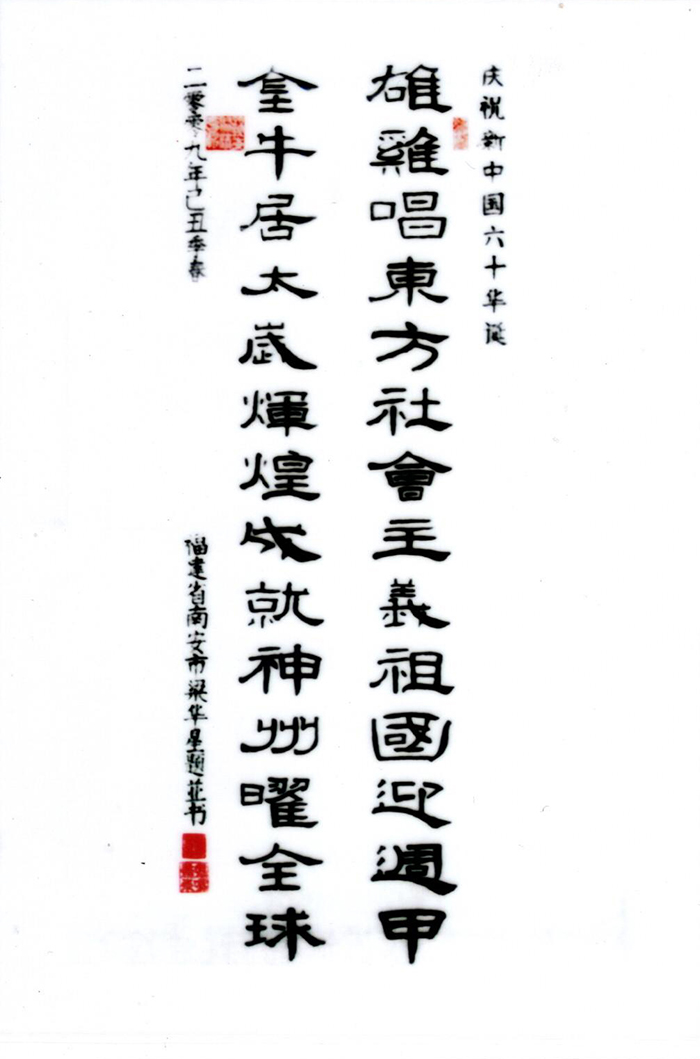 庆祝新中国六十华诞
雄雞唱東方社會主義祖國迎週甲
金牛居太歲輝煌成就神州曜全球
二零零九年己丑季春
福建省南安市梁华星题並书